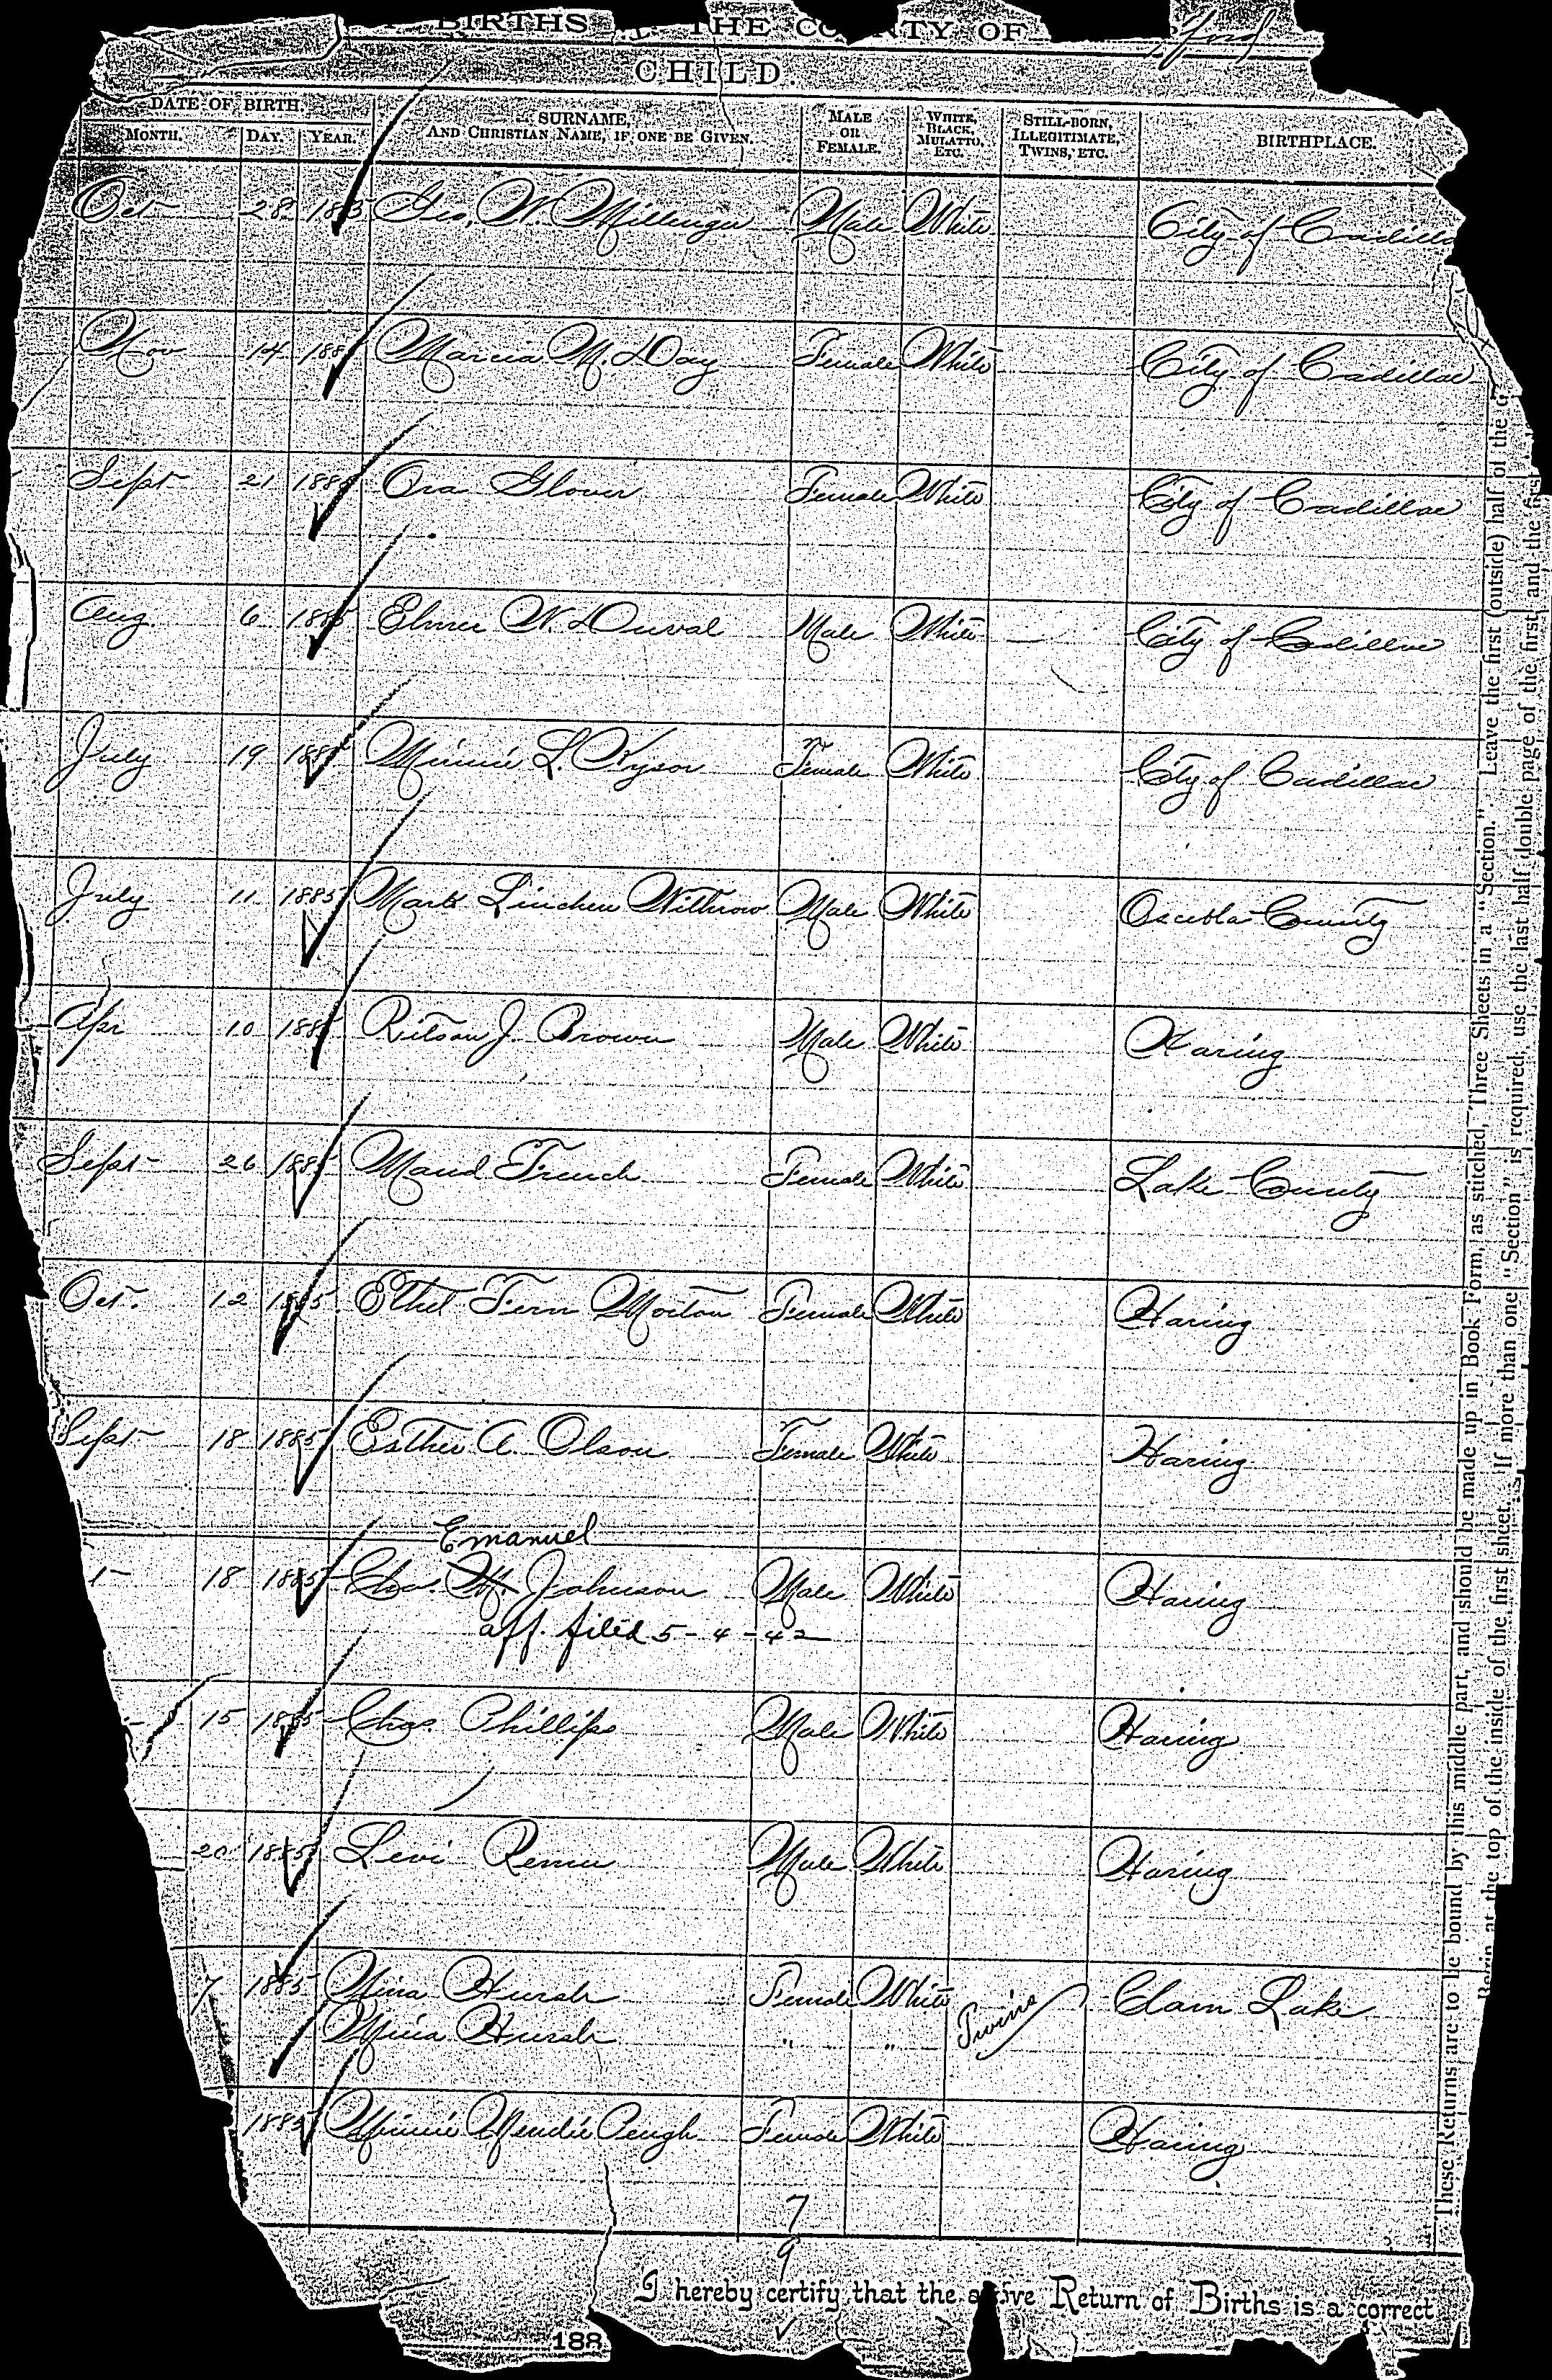 BIRTHS THE COUNTY OF
CHILD.
DATE OF BIRTH.
MONTH. DAY. YEAR.
SURNAME,
AND CHRISTIAN NAME, IF ONE BE GIVEN.
MALE
OR
FEMALE.
WHITE,
BLACK,
MULATTO,
ETC.
STILL-BORN,
ILLEGITIMATE,
TWINS, ETC.
BIRTHPLACE.
Oct 28 1885 Geo. W. Male White City of Cadillac
Nov 14 188 Marcia M. Day Female White City of Cadillac
Sept 21 1885 Ora Glover Female White City of Cadillac
Aug 6 1885 Elmer W. Duval Male White City of Cadillac
July 19 188 Minnie L. Kysor Female White City of Cadillac
July 11 1885 Mark Withrow Male White Osceola County
Apr 10 1885 Ritson J. Brown Male White Haring
Sept 26 1885 Maud French Female White Lake County
Oct. 12 1885 Ethel Fern Morton Female White Haring
Sept 18 1885 Esther A. Olson Female White Haring
Emanuel
18 1885 Chas. M. Johnson Male White Haring
aff. filed 5-4-42
15 1885 Chas. Phillips Male White Haring
20 1885 Levi Male White Haring
7 1885 Nina Hursh Female White Twins Clam Lake
Mina Hursh " "
1885 Minnie Peugh Female White Haring
7
9
I hereby certify, that the above Return of Births is a correct
188
These Returns are to be bound by this middle part, and should be made up in Book Form, as stitched, Three Sheets in a "Section." Leave the first (outside) half of the
Begin at the top of the inside of the first sheet. If more than one "Section" is required, use the last half double page of the first, and the first